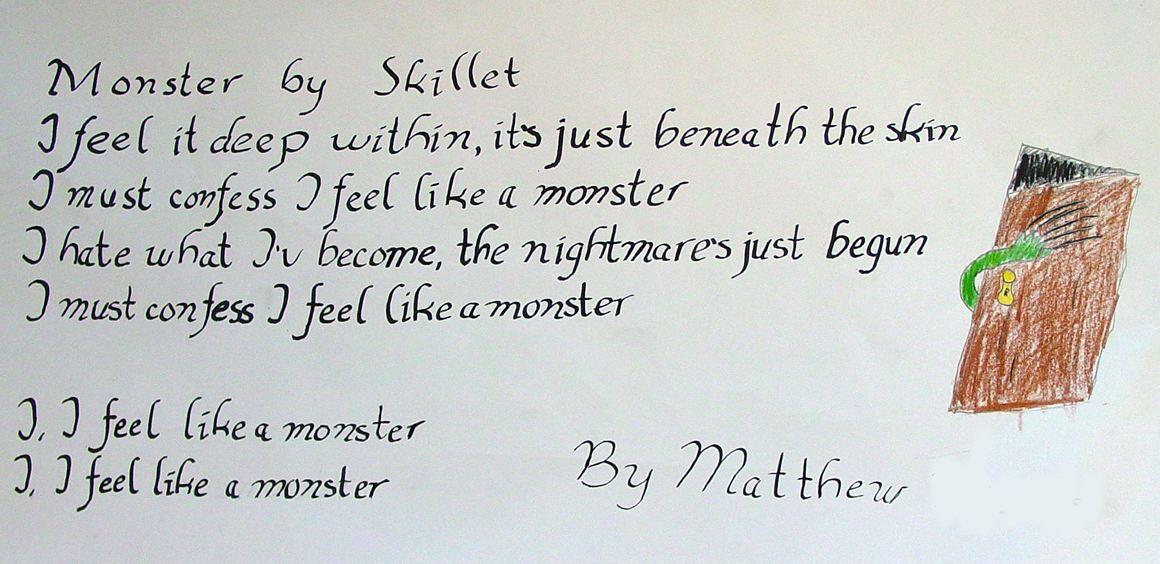 Monster by Skillet
I feel it deep within, it's just beneath the skin
I must confess I feel like a monster
I hate what I'v become, the nightmare's just begun
I must confess I feel like a monster
I, I feel like a monster
I, I feel like a monster
By Matthew